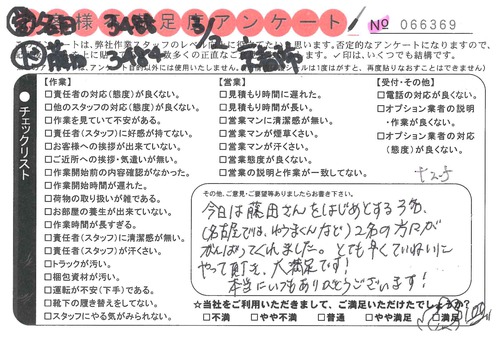 お客様満足度アンケート
№ 066369
アンケートは、弊社作業スタッフのレベル向上に役立てたいと思います。否定的なアンケートになりますので、
数多くの正直なご
印は、いくつでも結構です。
アンケート目的以外には使用いたしません。
シールは1度はがすと、再度貼りなおすことはできません)
チェックリスト
【作業】
□責任者の対応(態度)が良くない。
□他のスタッフの対応(態度)が良くない。
□作業を見ていて不安がある。
□責任者(スタッフ)に好感が持てない。
□お客様への挨拶が出来ていない。
□ご近所への挨拶・気遣いが無い。
□作業開始前の内容確認がなかった。
□作業開始時間が遅れた。
□荷物の取り扱いが雑である。
□お部屋の養生が出来ていない。
□作業時間が長すぎる。
□責任者(スタッフ)に清潔感が無い。
□責任者(スタッフ)が汗くさい。
□トラックが汚い。
□梱包資材が汚い。
□運転が不安(下手)である。
□靴下の履き替えをしてない。
□スタッフにやる気がみられない。
【営業】
□見積もり時間に遅れた。
□見積もり時間が長い。
□営業マンに清潔感が無い。
□営業マンが煙草くさい。
□営業マンが汗くさい。
□営業態度が良くない。
□営業の説明と作業が一致してない。
【受付・その他】
□電話の対応が良くない。
□オプション業者の説明
・作業が良くない。
□オプション業者の対応
(態度)が良くない。
その他、ご意見・ご要望等ありましたらお書き下さい。
今日は藤田さんをはじめとする3名、
(名古屋では、ゆうまくんなど)2名の方にが
がんばってくれました。とても早くていねいに
やって頂き、大満足です!
本当にいつもありがとうございます!
☆当社をご利用いただきまして、ご満足いただけたでしょうか?
□不満 □やや不満 □普通 □やや満足 □満足